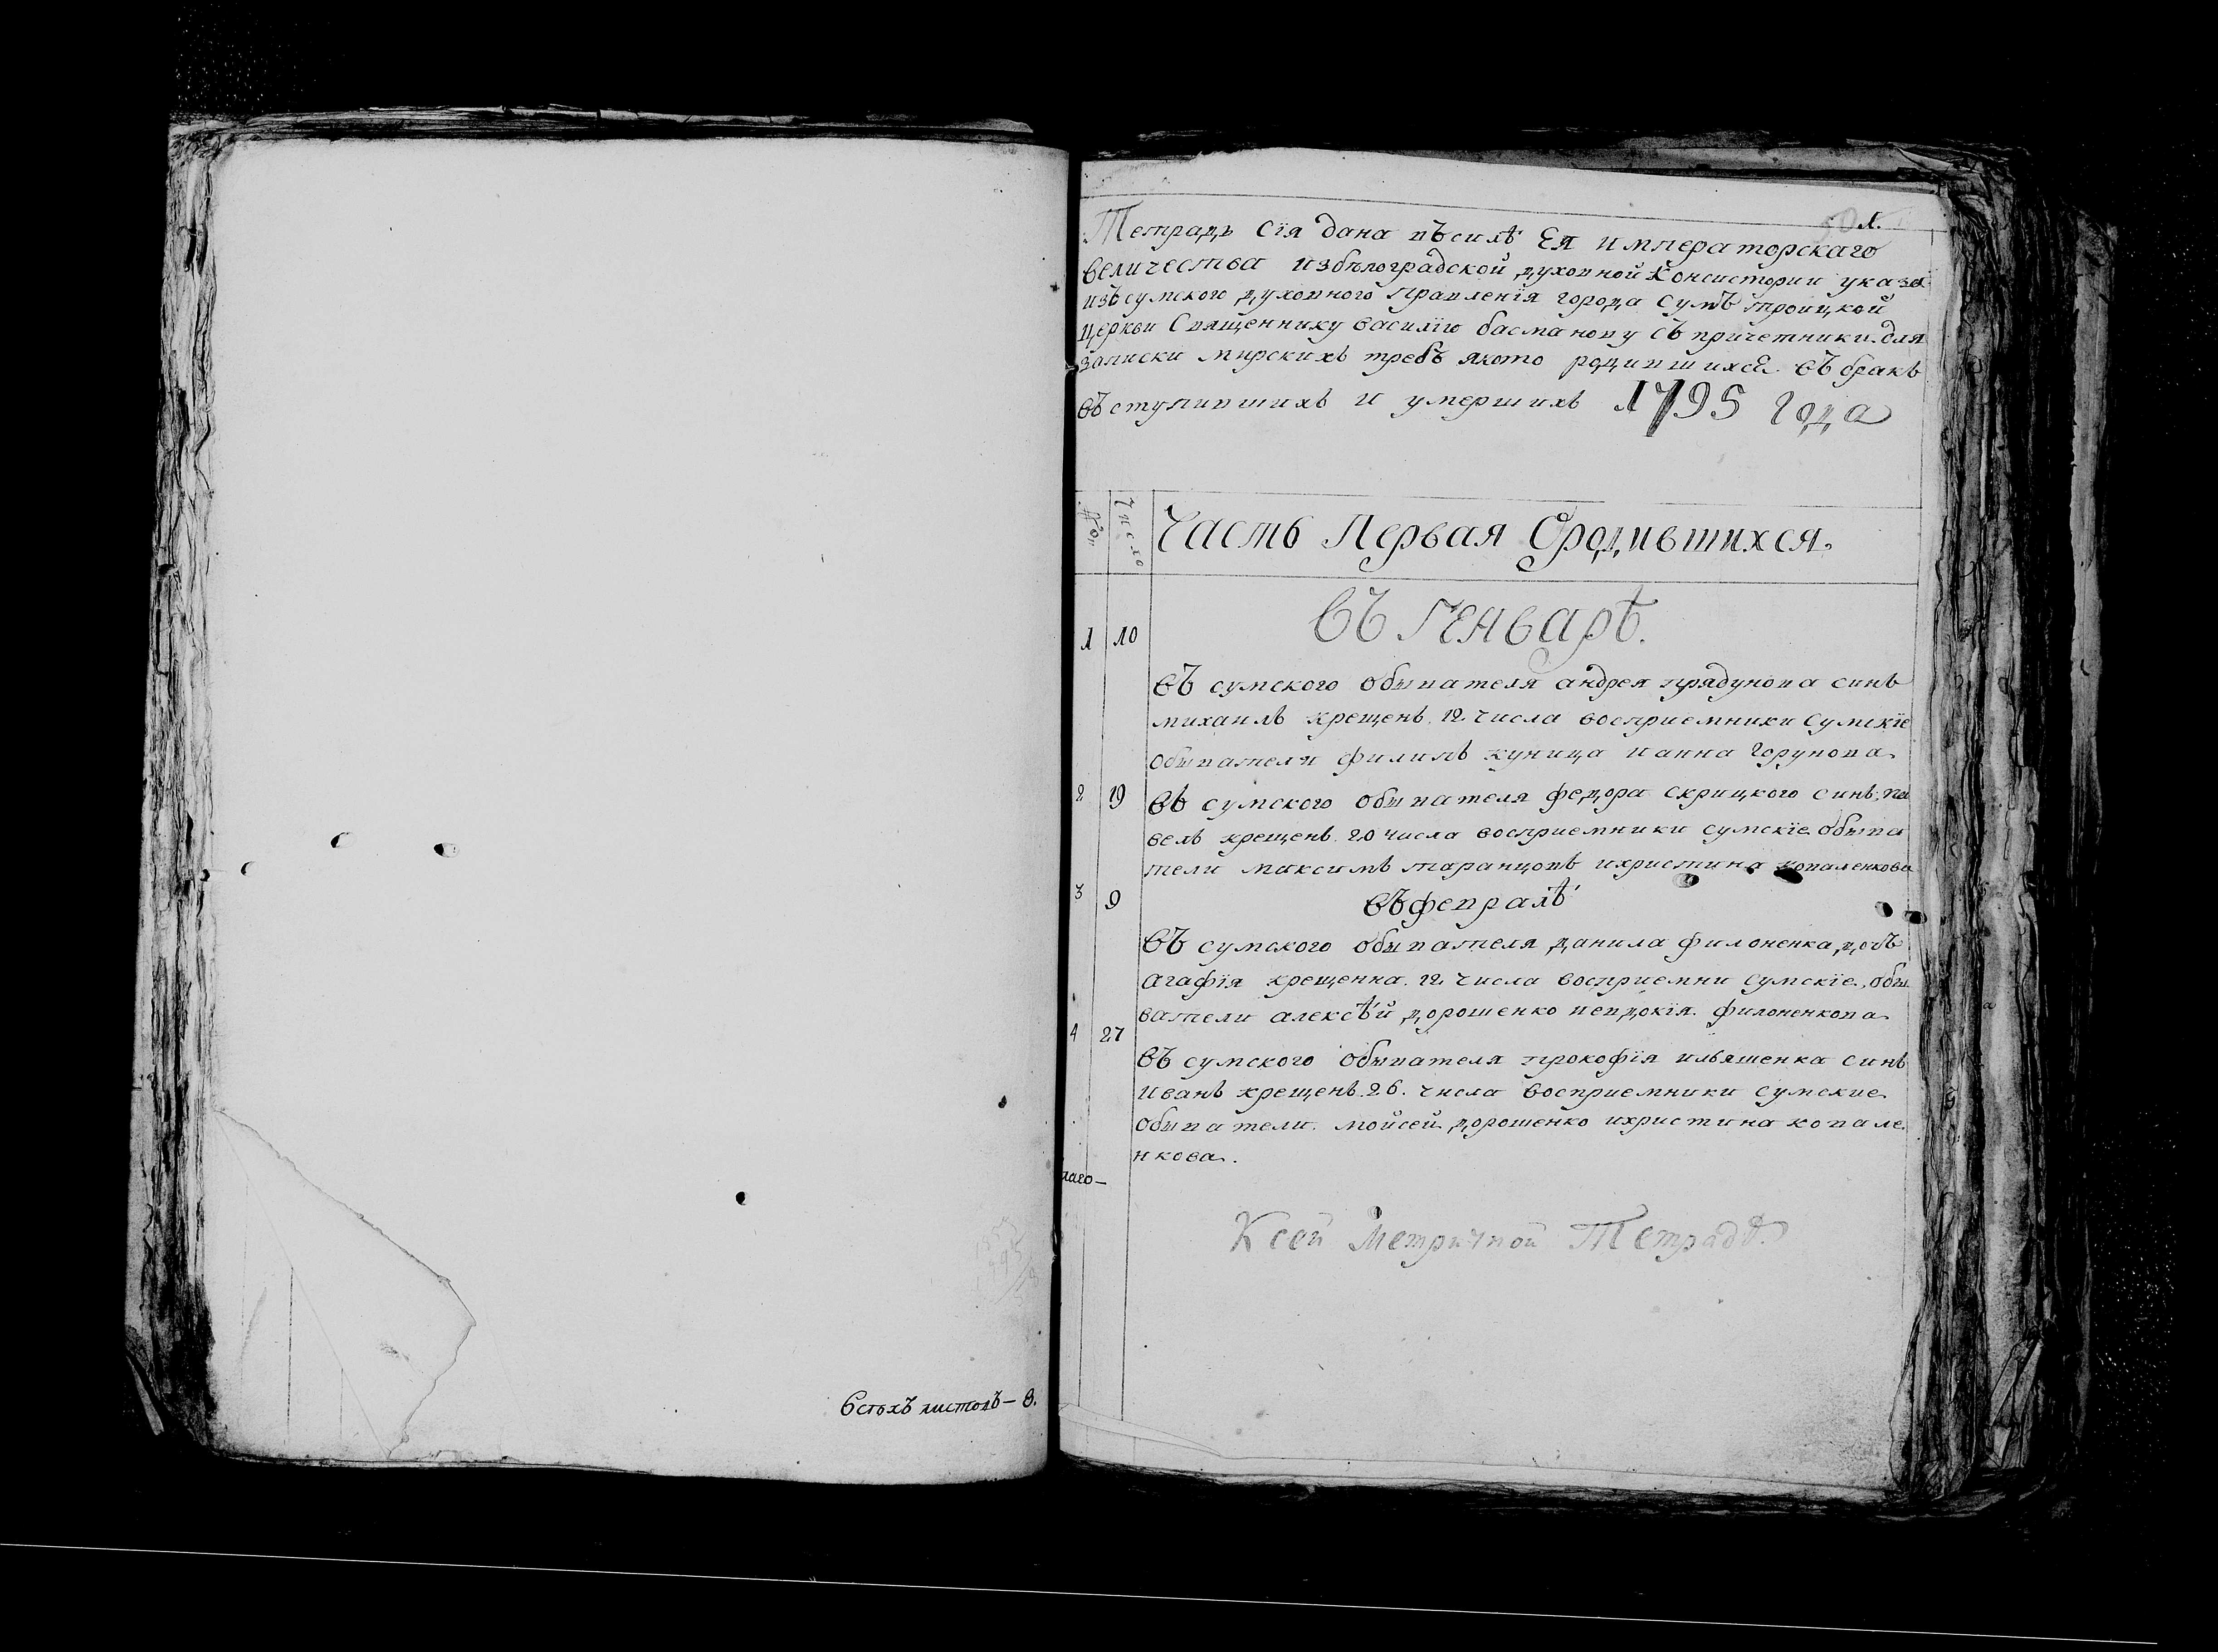 Всѣхъ листовъ — 8.
1.
Тетрадь сїя дана въ силѣ Ея императорскаго
величества избѣлоградской духовной Консистории указа
изъ сумского духовного правленїя города Сумъ троицкой
церкви Священнику василїю басманову съ причетники для
записки мирскихъ требъ якото родившихся въ бракъ
въступившихъ и умершихъ 1795 года
№ Число Часть Первая Ородившихся.
Въ Генварѣ.
1 10
въ сумского обывателя андрея прядунова синъ
михаилъ крещенъ 12 числа восприемники сумскїе
обыватели филипъ куница и анна горунова
2 19 въ сумского обывателя федора скрицкого синъ па
велъ крещенъ 20 числа восприемники сумскїе обыва
тели максимъ таранцовъ ихристина коваленкова
3 9 въ февралѣ
въ сумского обывателя данила филоненка дочъ
агафїя крещенна 12 числа восприемни сумскїе обы
ватели алексѣй дорошенко иевдокїя филоненкова
4 27
въ сумского обывателя прокофїя ильяшенка синъ
иванъ крещенъ 26. числа восприемники сумские
обыватели мойсей дорошенко ихристина ковале
нкова.
Ксей Метричной Тетрадѣ